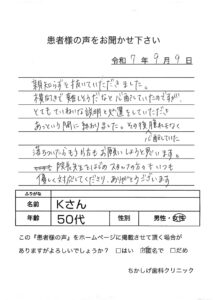 患者様の声をお聞かせ下さい
令和 7 年 9 月 9 日
親知らずを抜いていただきました。
横向きで難しそうだなと心配していたのですが、
とてもていねいな説明と処置をしていただき
あっという間に終わりました。その後腫れもなく
心配していた
落ちついたらもう片方もお願いしようと思います。
院長先生をはじめスタッフの方々もいつも
優しく対応してくださり、ありがとうございます
ふりがな
名前 Kさん
年齢 50代 性別 男性・女性
この『患者様の声』をホームページに掲載させて頂く場合が
ありますがよろしいでしょうか? □はい ☑匿名で □だめ
ちかしげ歯科クリニック